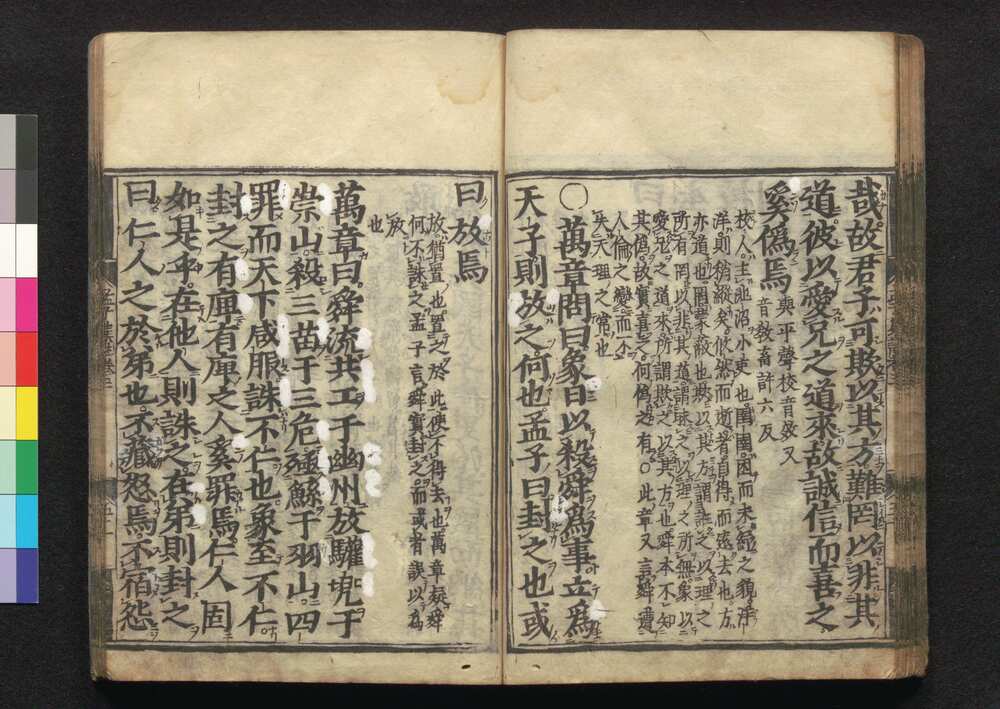 哉故君子可欺以其方難罔以非其
道彼以愛兄之道來故誠信而喜之
奚僞焉
與平聲校音效又
音教畜許六反
校人主池沼小吏也圉圉困而未紓之貌洋
洋則稍縱矣攸然而逝者自得而遠去也方
亦道也罔蒙蔽也欺以其方謂誑之以理之
所有罔以非其道謂昧之以理之所無象以
愛兄之道來所謂欺之以其方也舜本不知
其僞故實喜之何僞之有○此章又言舜遭
人倫之變而不
失天理之常也
○萬章問曰象日以殺舜爲事立爲
天子則放之何也孟子曰封之也或
曰放焉
放猶置也置之於此使不得去也萬章疑舜
何不誅之孟子言舜實封之而或者誤以爲
放
也
萬章曰舜流共工于幽州放驩兜于
崇山殺三苗于三危殛鯀于羽山四
罪而天下咸服誅不仁也象至不仁
封之有庳有庳之人奚罪焉仁人固
如是乎在他人則誅之在弟則封之
曰仁人之於弟也不藏怒焉不宿怨